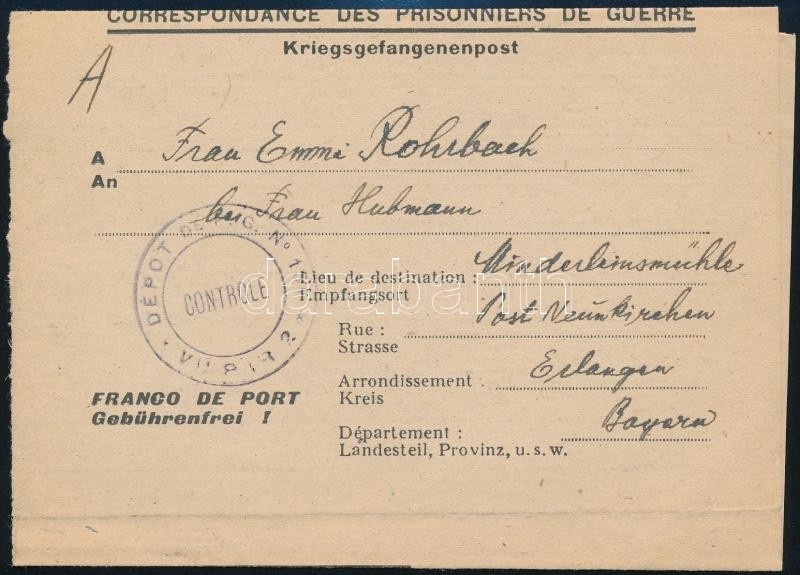 CORRESPONDANCE DES PRISONNIERS DE GUERRE
Kriegsgefangenenpost
A
A Frau Emmi Rohrbach
An
bei Frau Hubmann
DÉPOT DE P.G. Nº
CONTROLE
Lieu de destination : Minderleinsmühle
Empfangsort
Rue : Post Neunkirchen
Strasse
Arrondissement Erlangen
Kreis
FRANCO DE PORT
Gebührenfrei !
Département : Bayern
Landesteil, Provinz, u. s. w.
darabanth